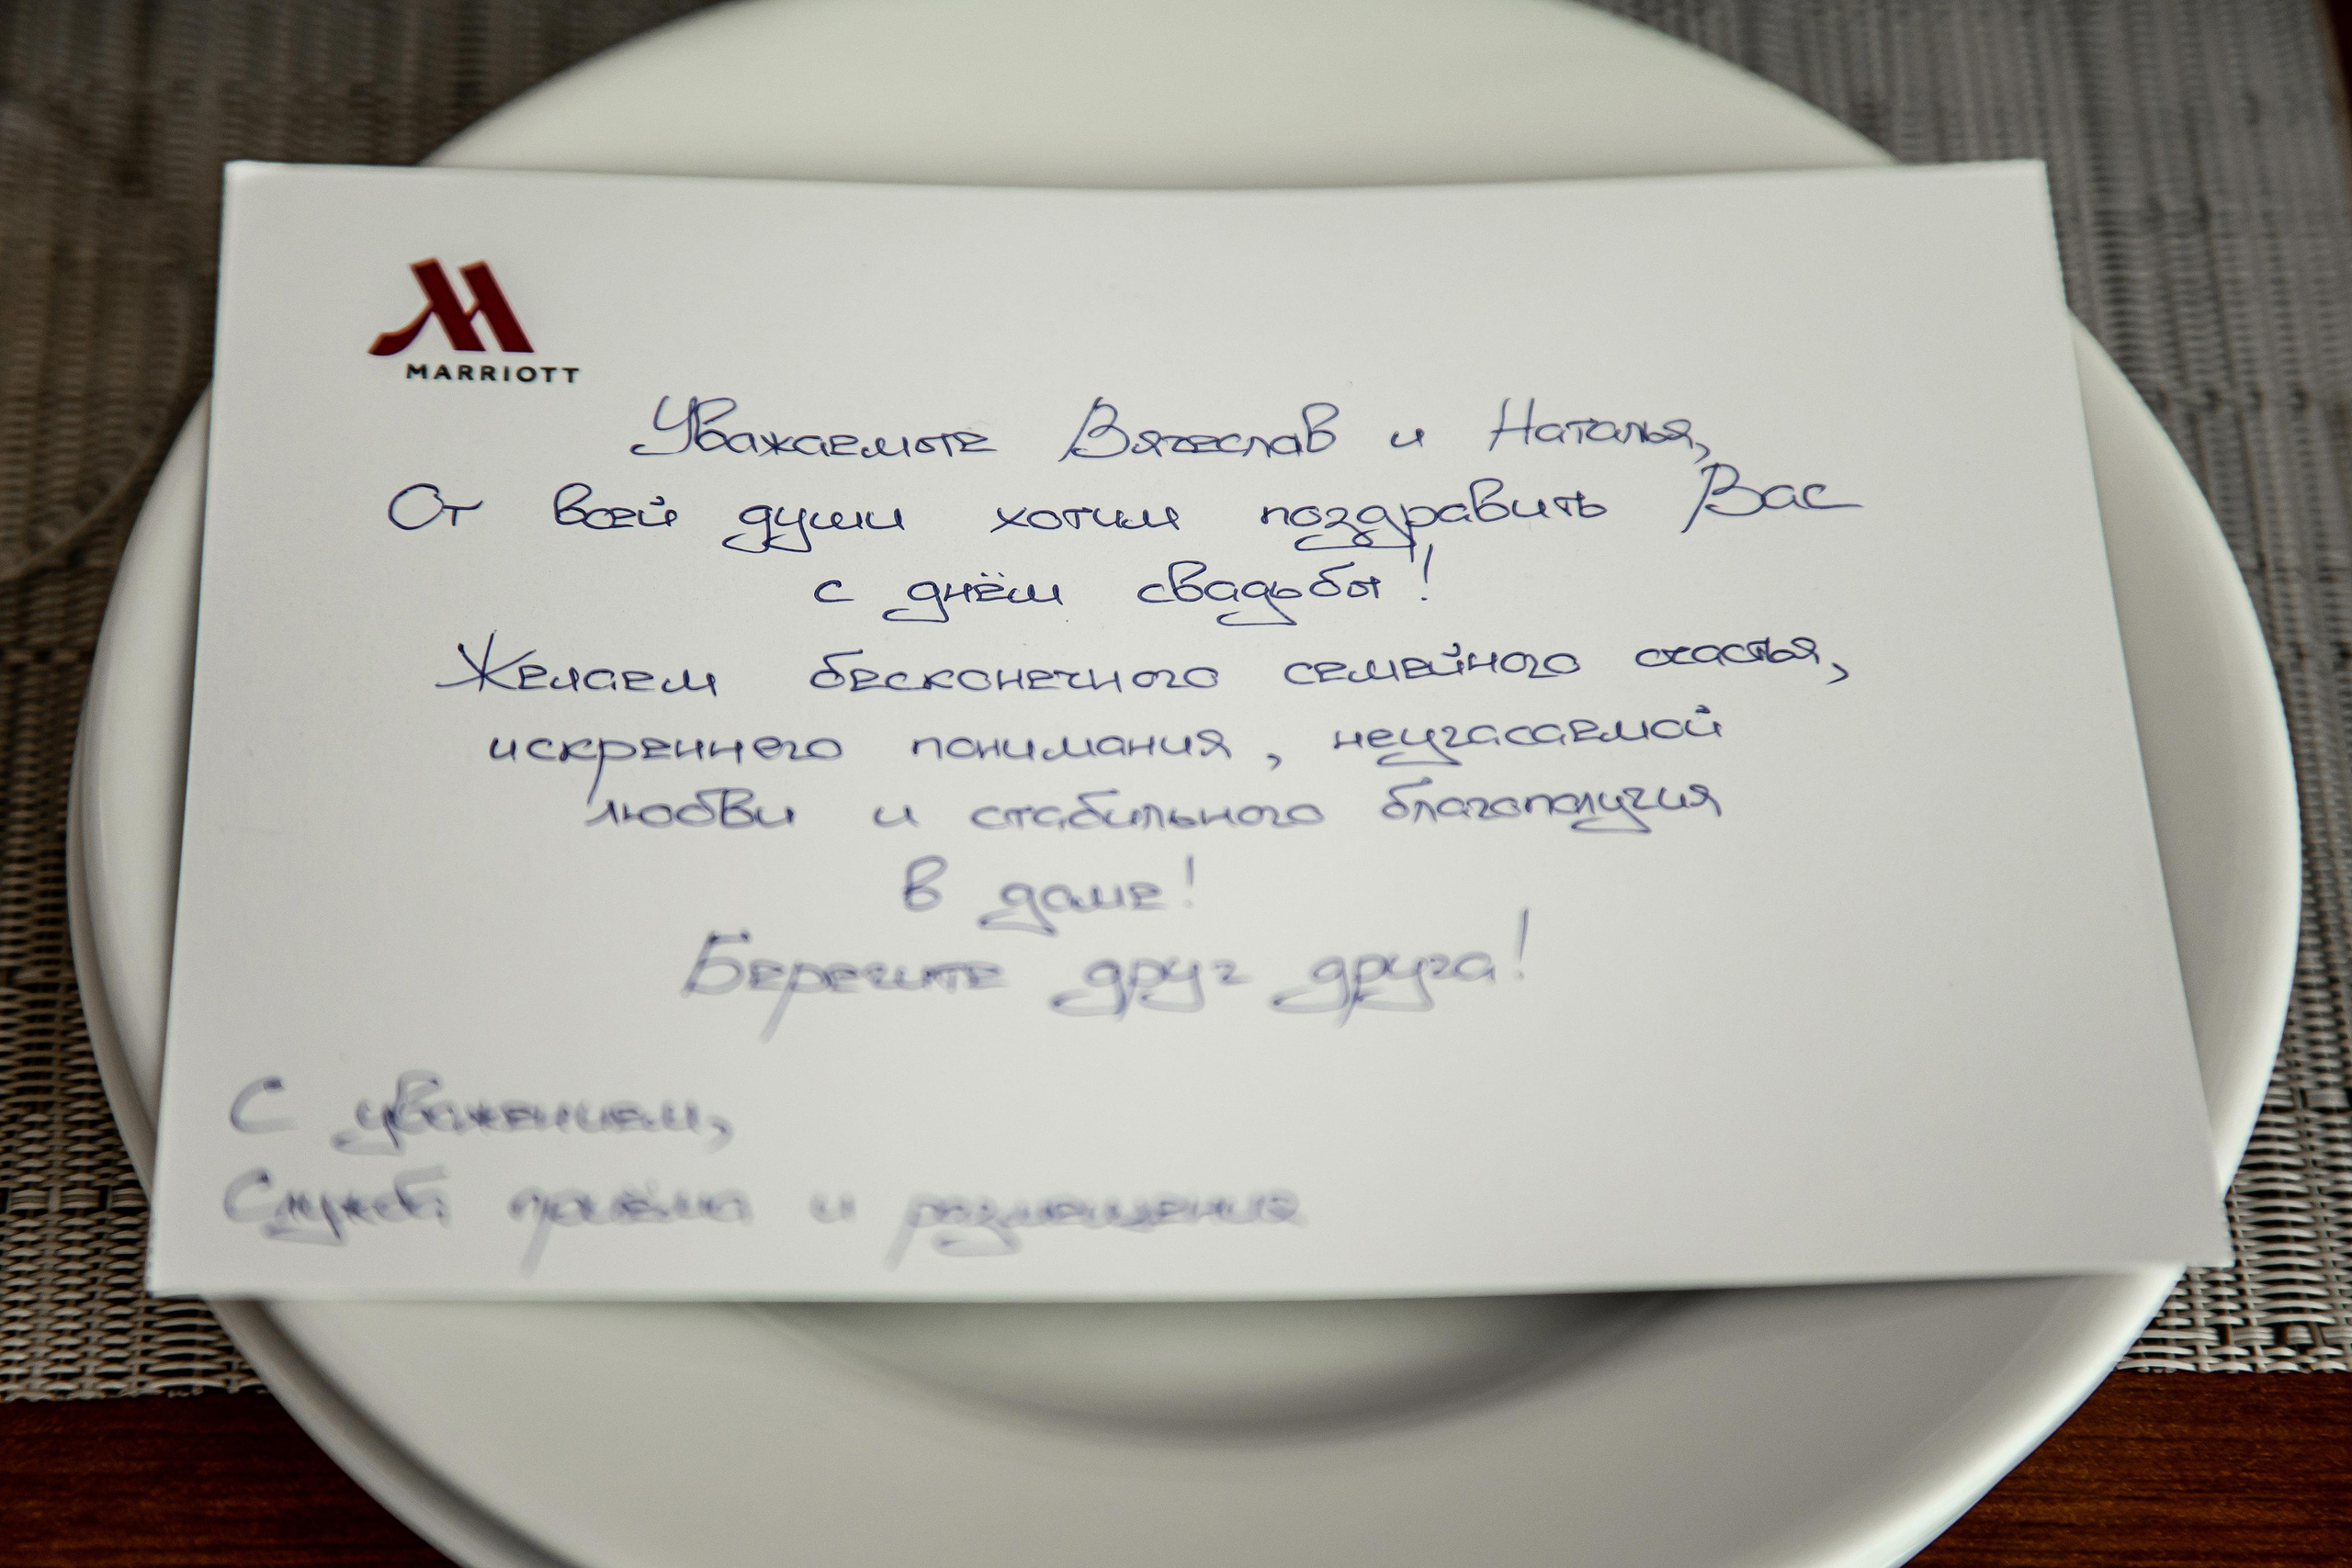 MARRIOTT
Уважаемые Вячеслав и Наталья,
От всей души хотим поздравить Вас
с днём свадьбы!
Желаем бесконечного семейного счастья,
искреннего понимания, неугасаемой
любви и стабильного благополучия
в доме!
Берегите друг друга!
С уважением,
Служба приёма и размещения